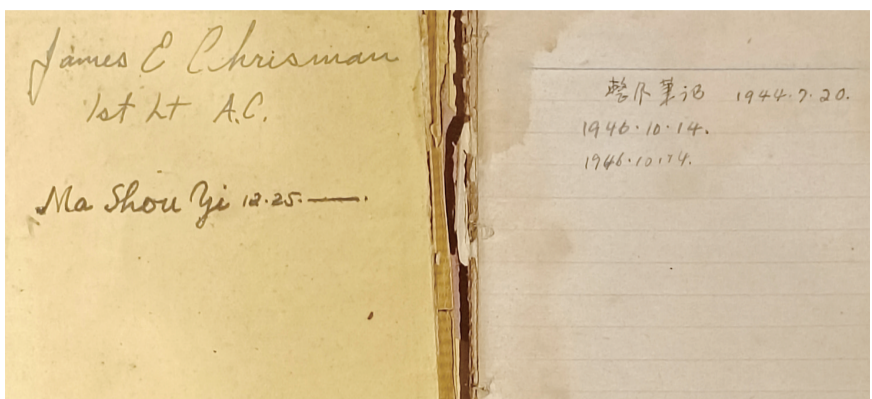 James E Chrisman
1st Lt A.C.
Ma Shou Yi 12.25.—.
整风笔记 1944.7.20.
1946.10.14.
1946.10.14.